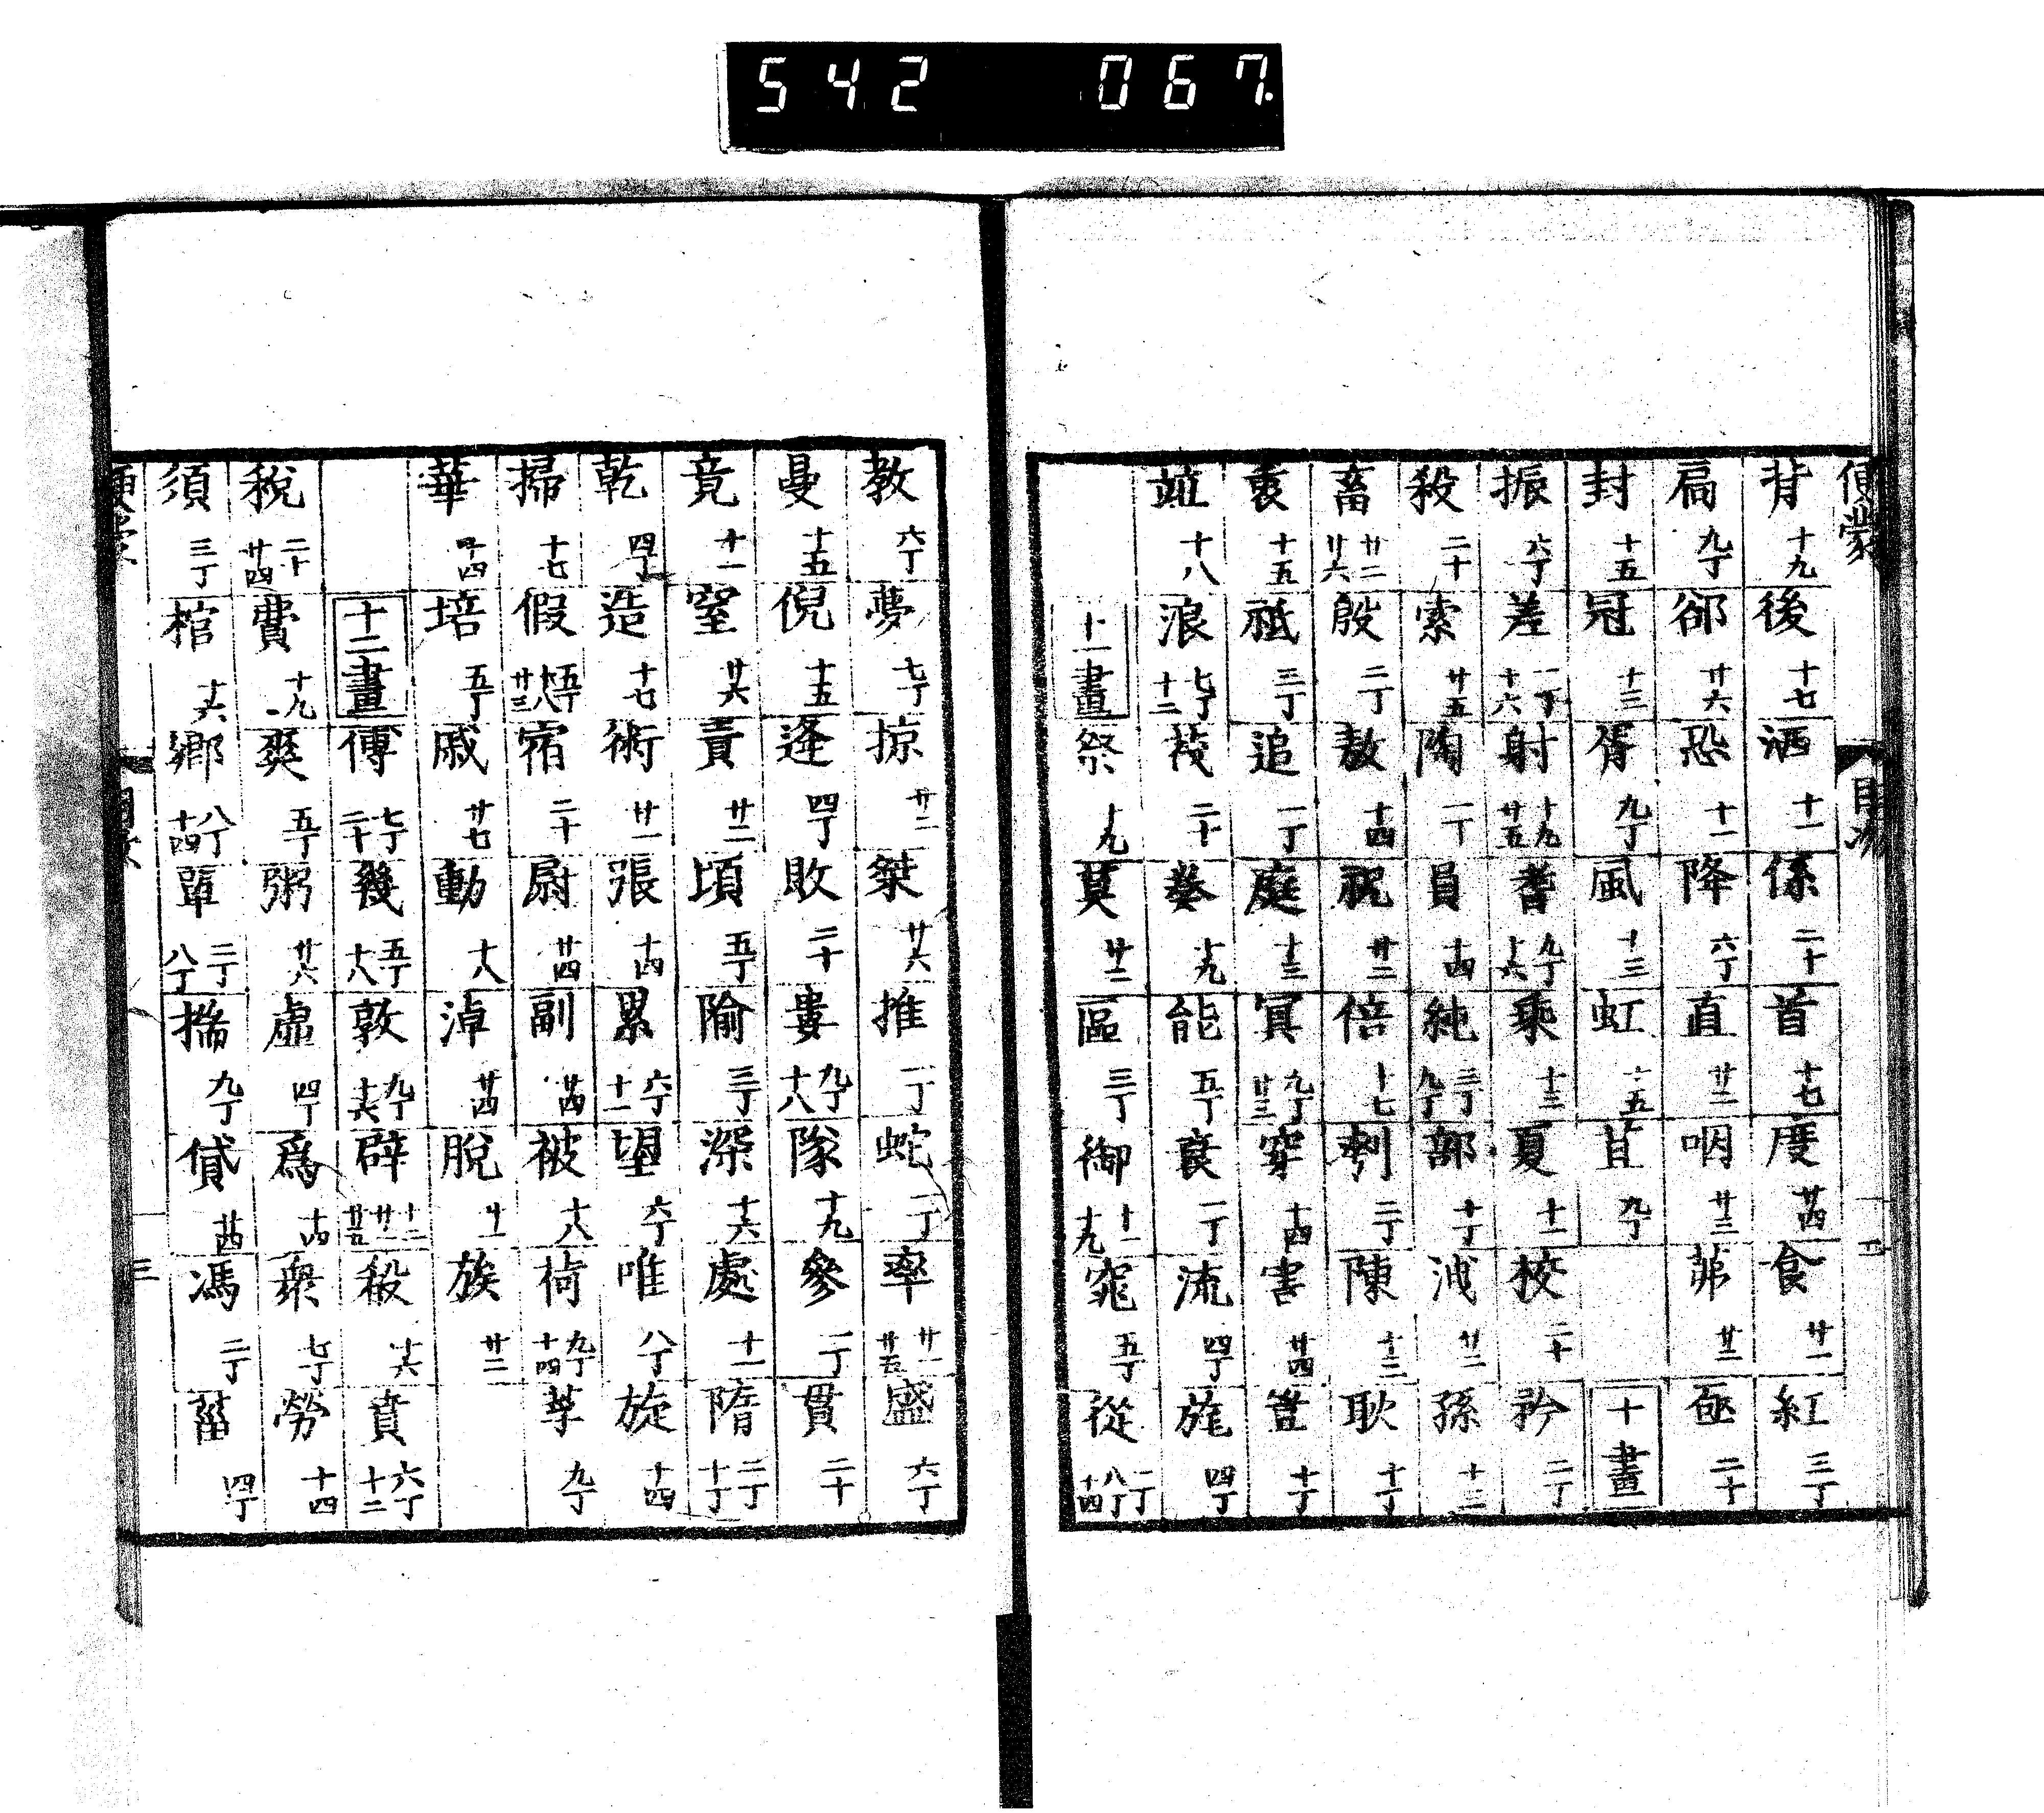 542 067.
蒙 目次
背 十九 後 十七 洒 十一 係 二十 首 十七 度 廿四 食 廿一 紅 三丁
扁 九丁 郤 廿六 恐 十一 降 六丁 直 廿二 咽 廿三 茀 廿二 亟 二十
封 十五 冠 十三 胥 九丁 風 十三 虹 十五 苴 九丁 十畫
振 六丁 差 一丁 十六 射 十九 廿五 耆 九丁 十六 乘 十三 夏 十一 校 二十 矜 二丁
殺 二十 索 廿五 陶 一丁 員 十四 純 三丁 九丁 部 十丁 洩 廿二 孫 十二
畜 廿二 廿六 殷 二丁 敖 十四 祝 廿二 倍 十七 刳 二丁 陳 十三 耿 十丁
衰 十五 祗 三丁 追 一丁 庭 十三 冥 九丁 廿三 穿 十四 害 廿四 豈 十丁
竝 十八 浪 七丁 十二 茷 二十 能 五丁 衰 一丁 流 四丁 旄 四丁
十一畫 祭 十九 莫 廿二 區 三丁 御 十一 十九 窕 五丁 從 一丁 八丁 十四
教 六丁 夢 七丁 掠 廿二 桀 廿六 推 一丁 蛇 一丁 率 廿一 廿五 盛 六丁
曼 十五 倪 十五 逢 四丁 敗 二十 婁 九丁 十八 隊 十九 參 一丁 貫 二十
竟 十一 窒 廿六 責 廿二 頃 五丁 隃 三丁 深 十六 處 十一 隋 二丁 十丁
乾 四丁 造 十七 術 廿一 張 十四 累 六丁 十一 望 六丁 唯 八丁 旋 十四
掃 十七 假 五丁 廿三 宿 二十 尉 廿四 副 廿四 被 十八 荷 九丁 十四 莩 九丁
華 十四 培 五丁 戚 廿七 動 十八 淖 廿四 脫 族 廿二
十二畫 傅 七丁 二十 幾 五丁 十八 敦 九丁 十六 辟 十二 廿一 廿五 殽 十六 賁 六丁 十二
稅 二十 廿四 費 十九 爽 五丁 粥 廿六 虛 四丁 爲 十四 衆 七丁 勞 十四
須 三丁 棺 十六 鄉 八丁 十四 單 二丁 八丁 揣 九丁 貸 廿四 馮 二丁 菑 四丁
三